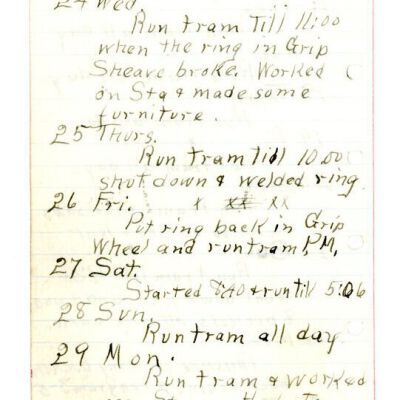 24 Wed.
Run tram Till 11:00
when the ring in Grip
Sheave broke. Worked
on Sta & made some
furniture.
25 Thurs.
Run tram till 10:00
shut down & welded ring.
26 Fri. x xx xx
Put ring back in Grip
Wheel and run tram, P.M,
27 Sat.
Started 8:40 & run till 5:06
28 Sun.
Run tram all day.
29 Mon.
Run tram & worked